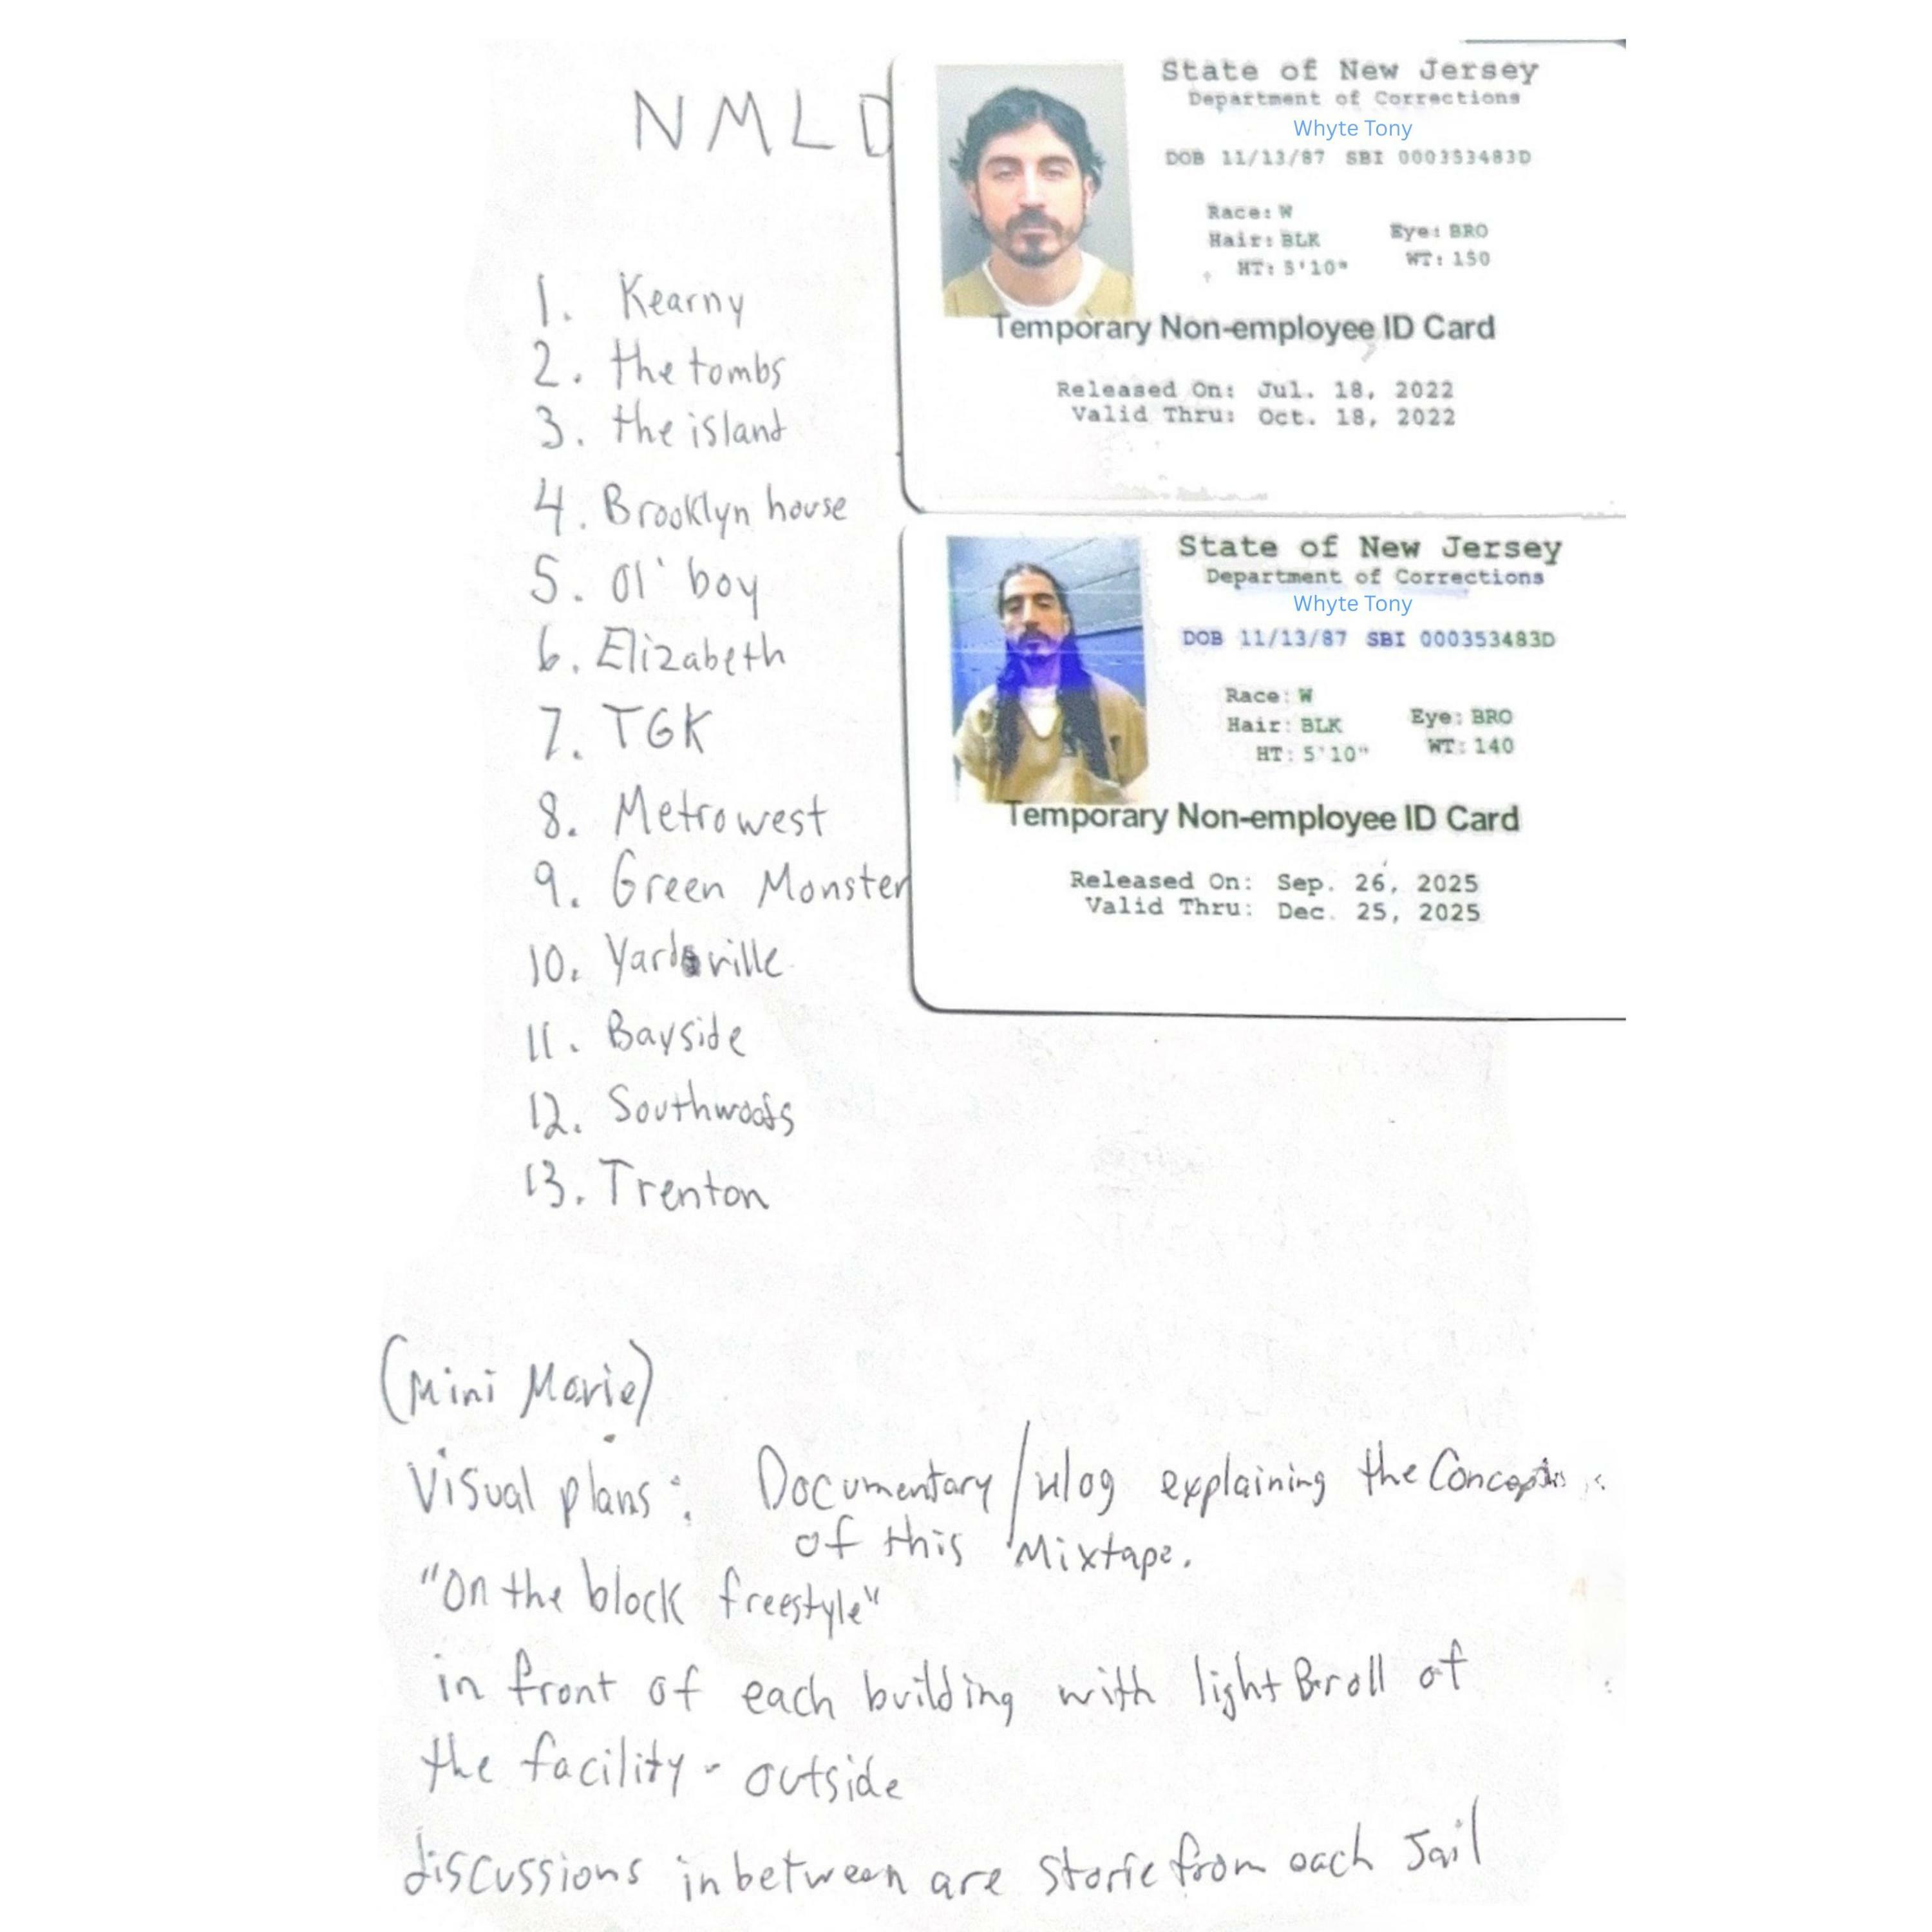 NMLD
1. Kearny
2. the tombs
3. the island
4. Brooklyn house
5. Ol' boy
6. Elizabeth
7. TGK
8. Metrowest
9. Green Monster
10. Yardville
11. Bayside
12. Southwoods
13. Trenton
State of New Jersey
Department of Corrections
Whyte Tony
DOB 11/13/87 SBI 000353483D
Race: W
Hair: BLK Eye: BRO
HT: 5'10" WT: 150
Temporary Non-employee ID Card
Released On: Jul. 18, 2022
Valid Thru: Oct. 18, 2022
State of New Jersey
Department of Corrections
Whyte Tony
DOB 11/13/87 SBI 000353483D
Race: W
Hair: BLK Eye: BRO
HT: 5'10" WT: 140
Temporary Non-employee ID Card
Released On: Sep. 26, 2025
Valid Thru: Dec. 25, 2025
(Mini Movie)
Visual plans: Documentary/vlog explaining the
of this Mixtape.
"On the block freestyle"
in front of each building with light B-roll of
the facility - outside
discussions inbetween are storie from each Jail